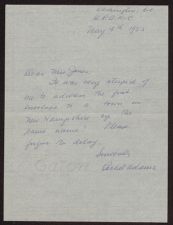 May 9th 1953
Dear Miss Jones
It was very stupid of
me to address the first
envelope to a town in
New Hampshire by the
same name! Please
forgive the delay.
Sincerely
Rachel Adams